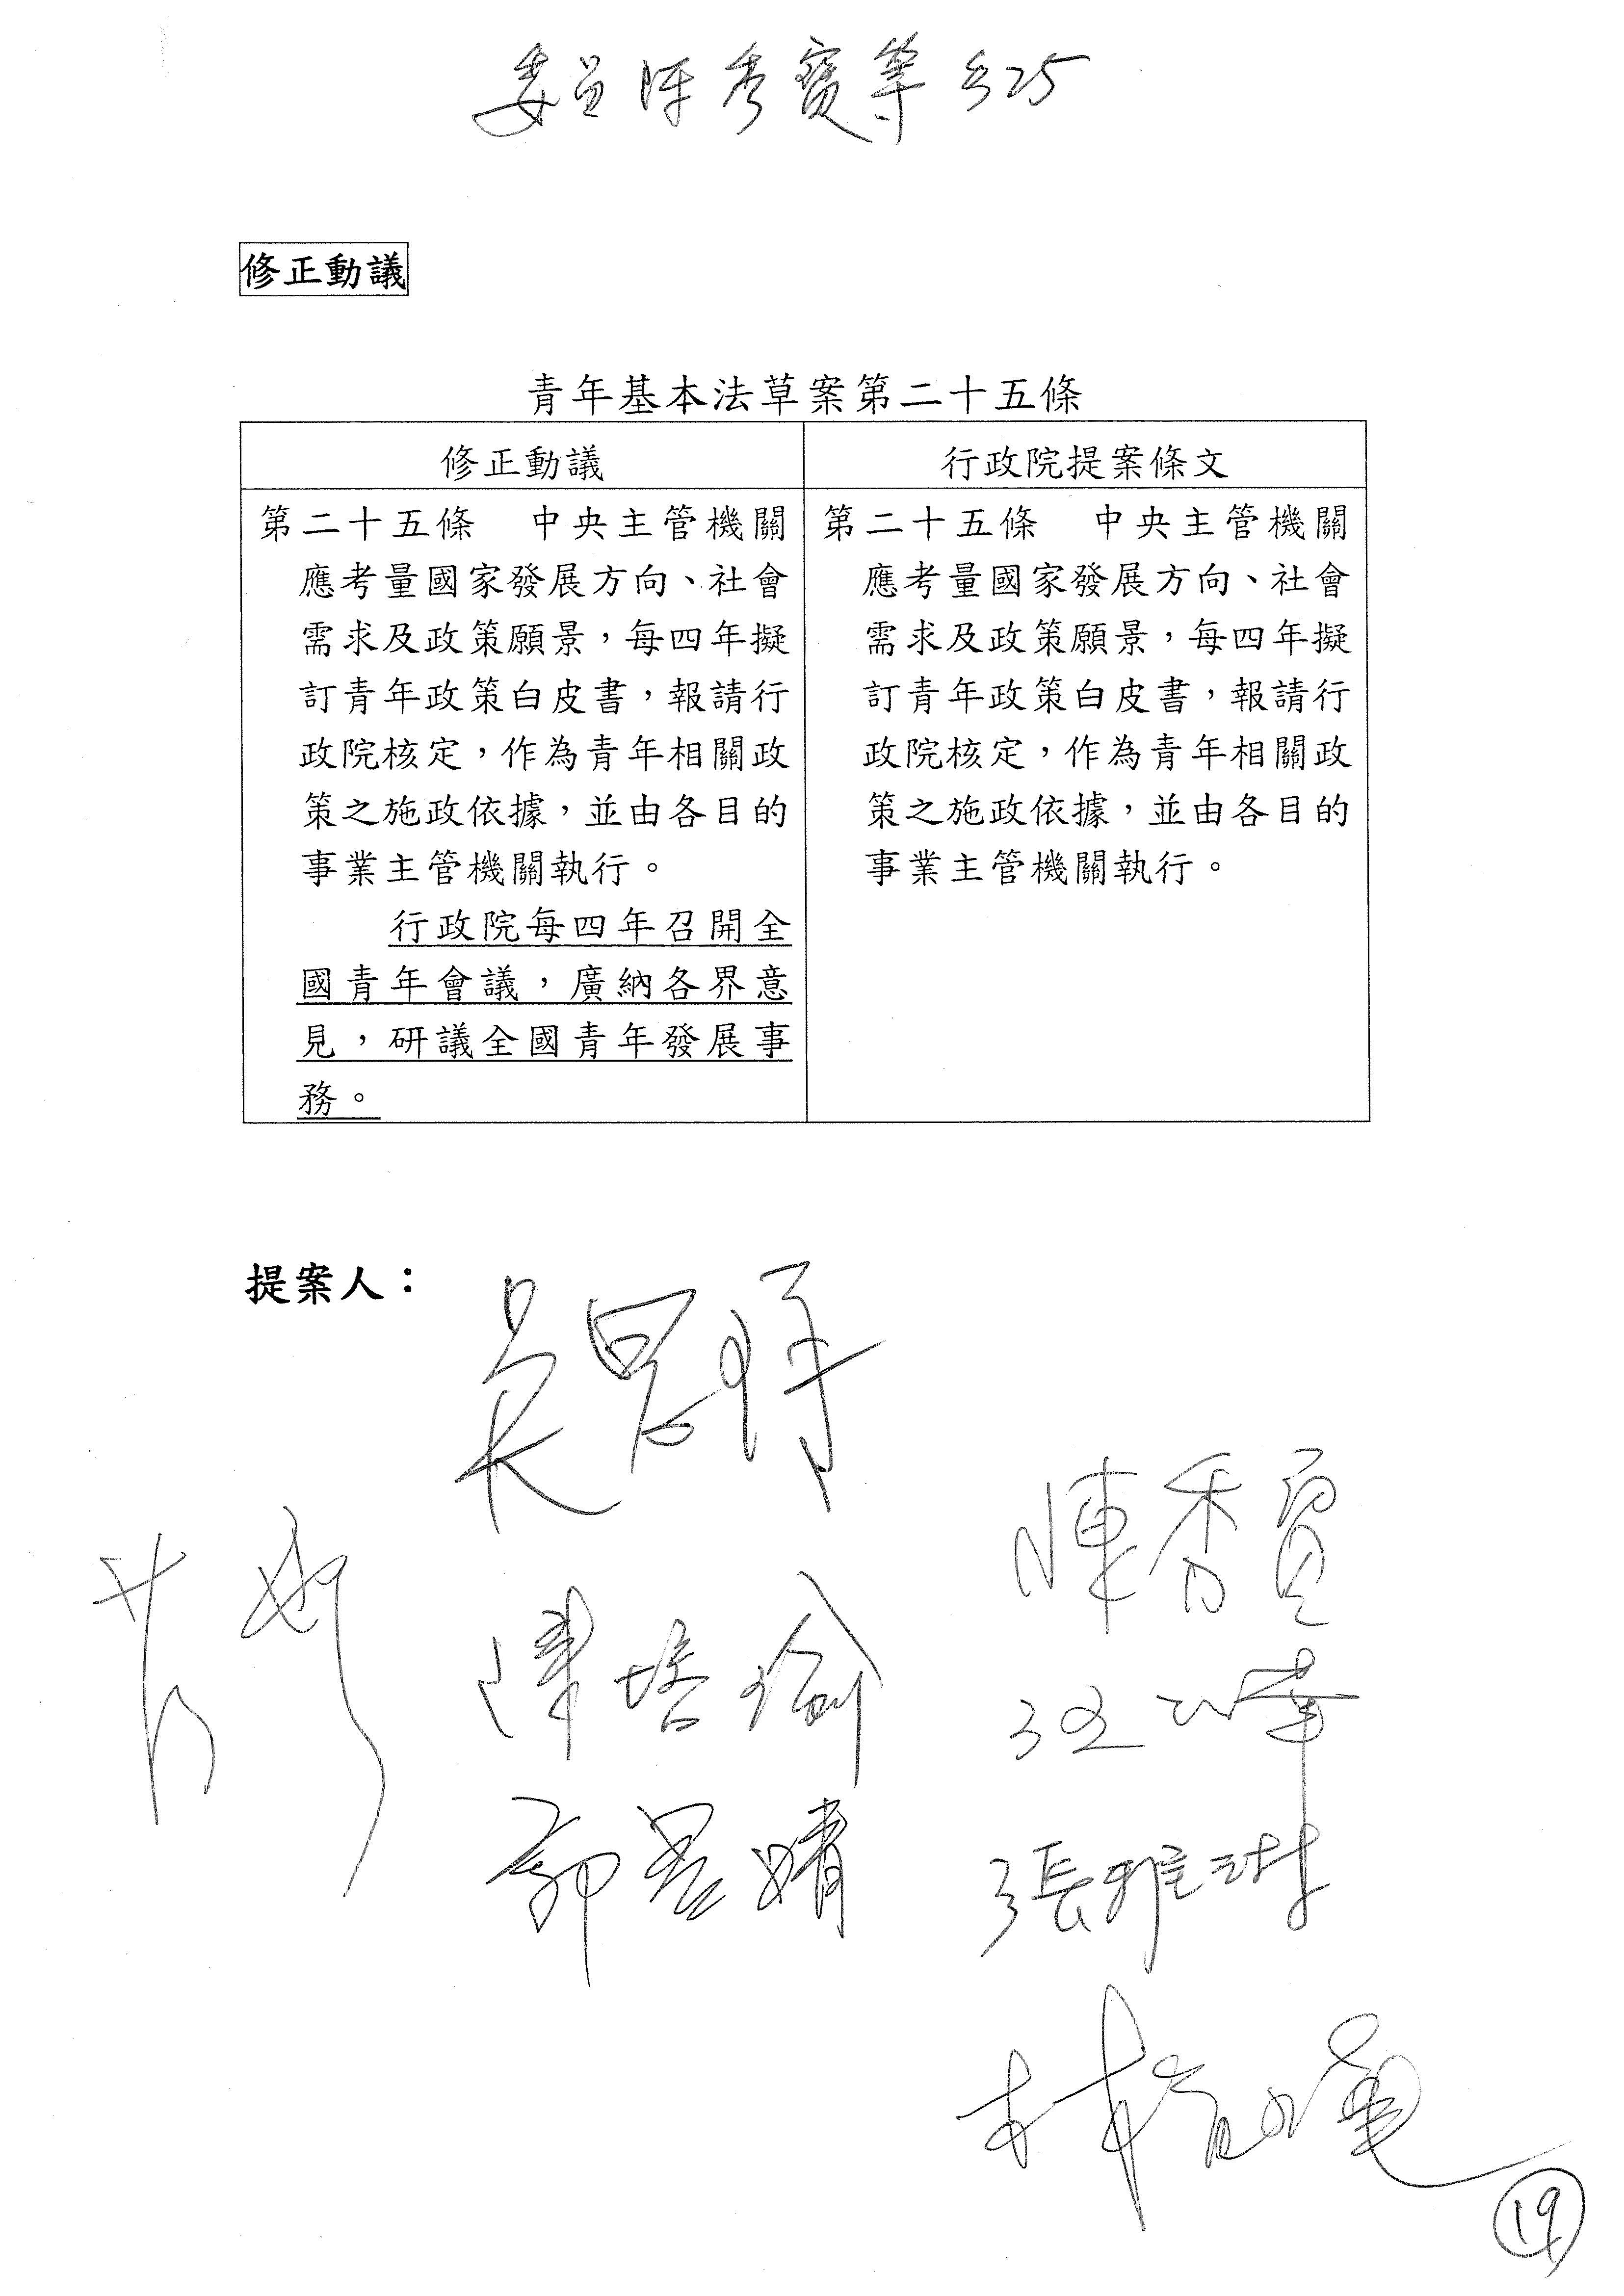 委員陳秀寳等 §25
修正動議
青年基本法草案第二十五條
修正動議
第二十五條　中央主管機關
應考量國家發展方向、社會
需求及政策願景，每四年擬
訂青年政策白皮書，報請行
政院核定，作為青年相關政
策之施政依據，並由各目的
事業主管機關執行。
行政院每四年召開全
國青年會議，廣納各界意
見，研議全國青年發展事
務。
行政院提案條文
第二十五條　中央主管機關
應考量國家發展方向、社會
需求及政策願景，每四年擬
訂青年政策白皮書，報請行
政院核定，作為青年相關政
策之施政依據，並由各目的
事業主管機關執行。
提案人：
陳秀寳
陳培瑜
郭昱晴
張雅琳
19